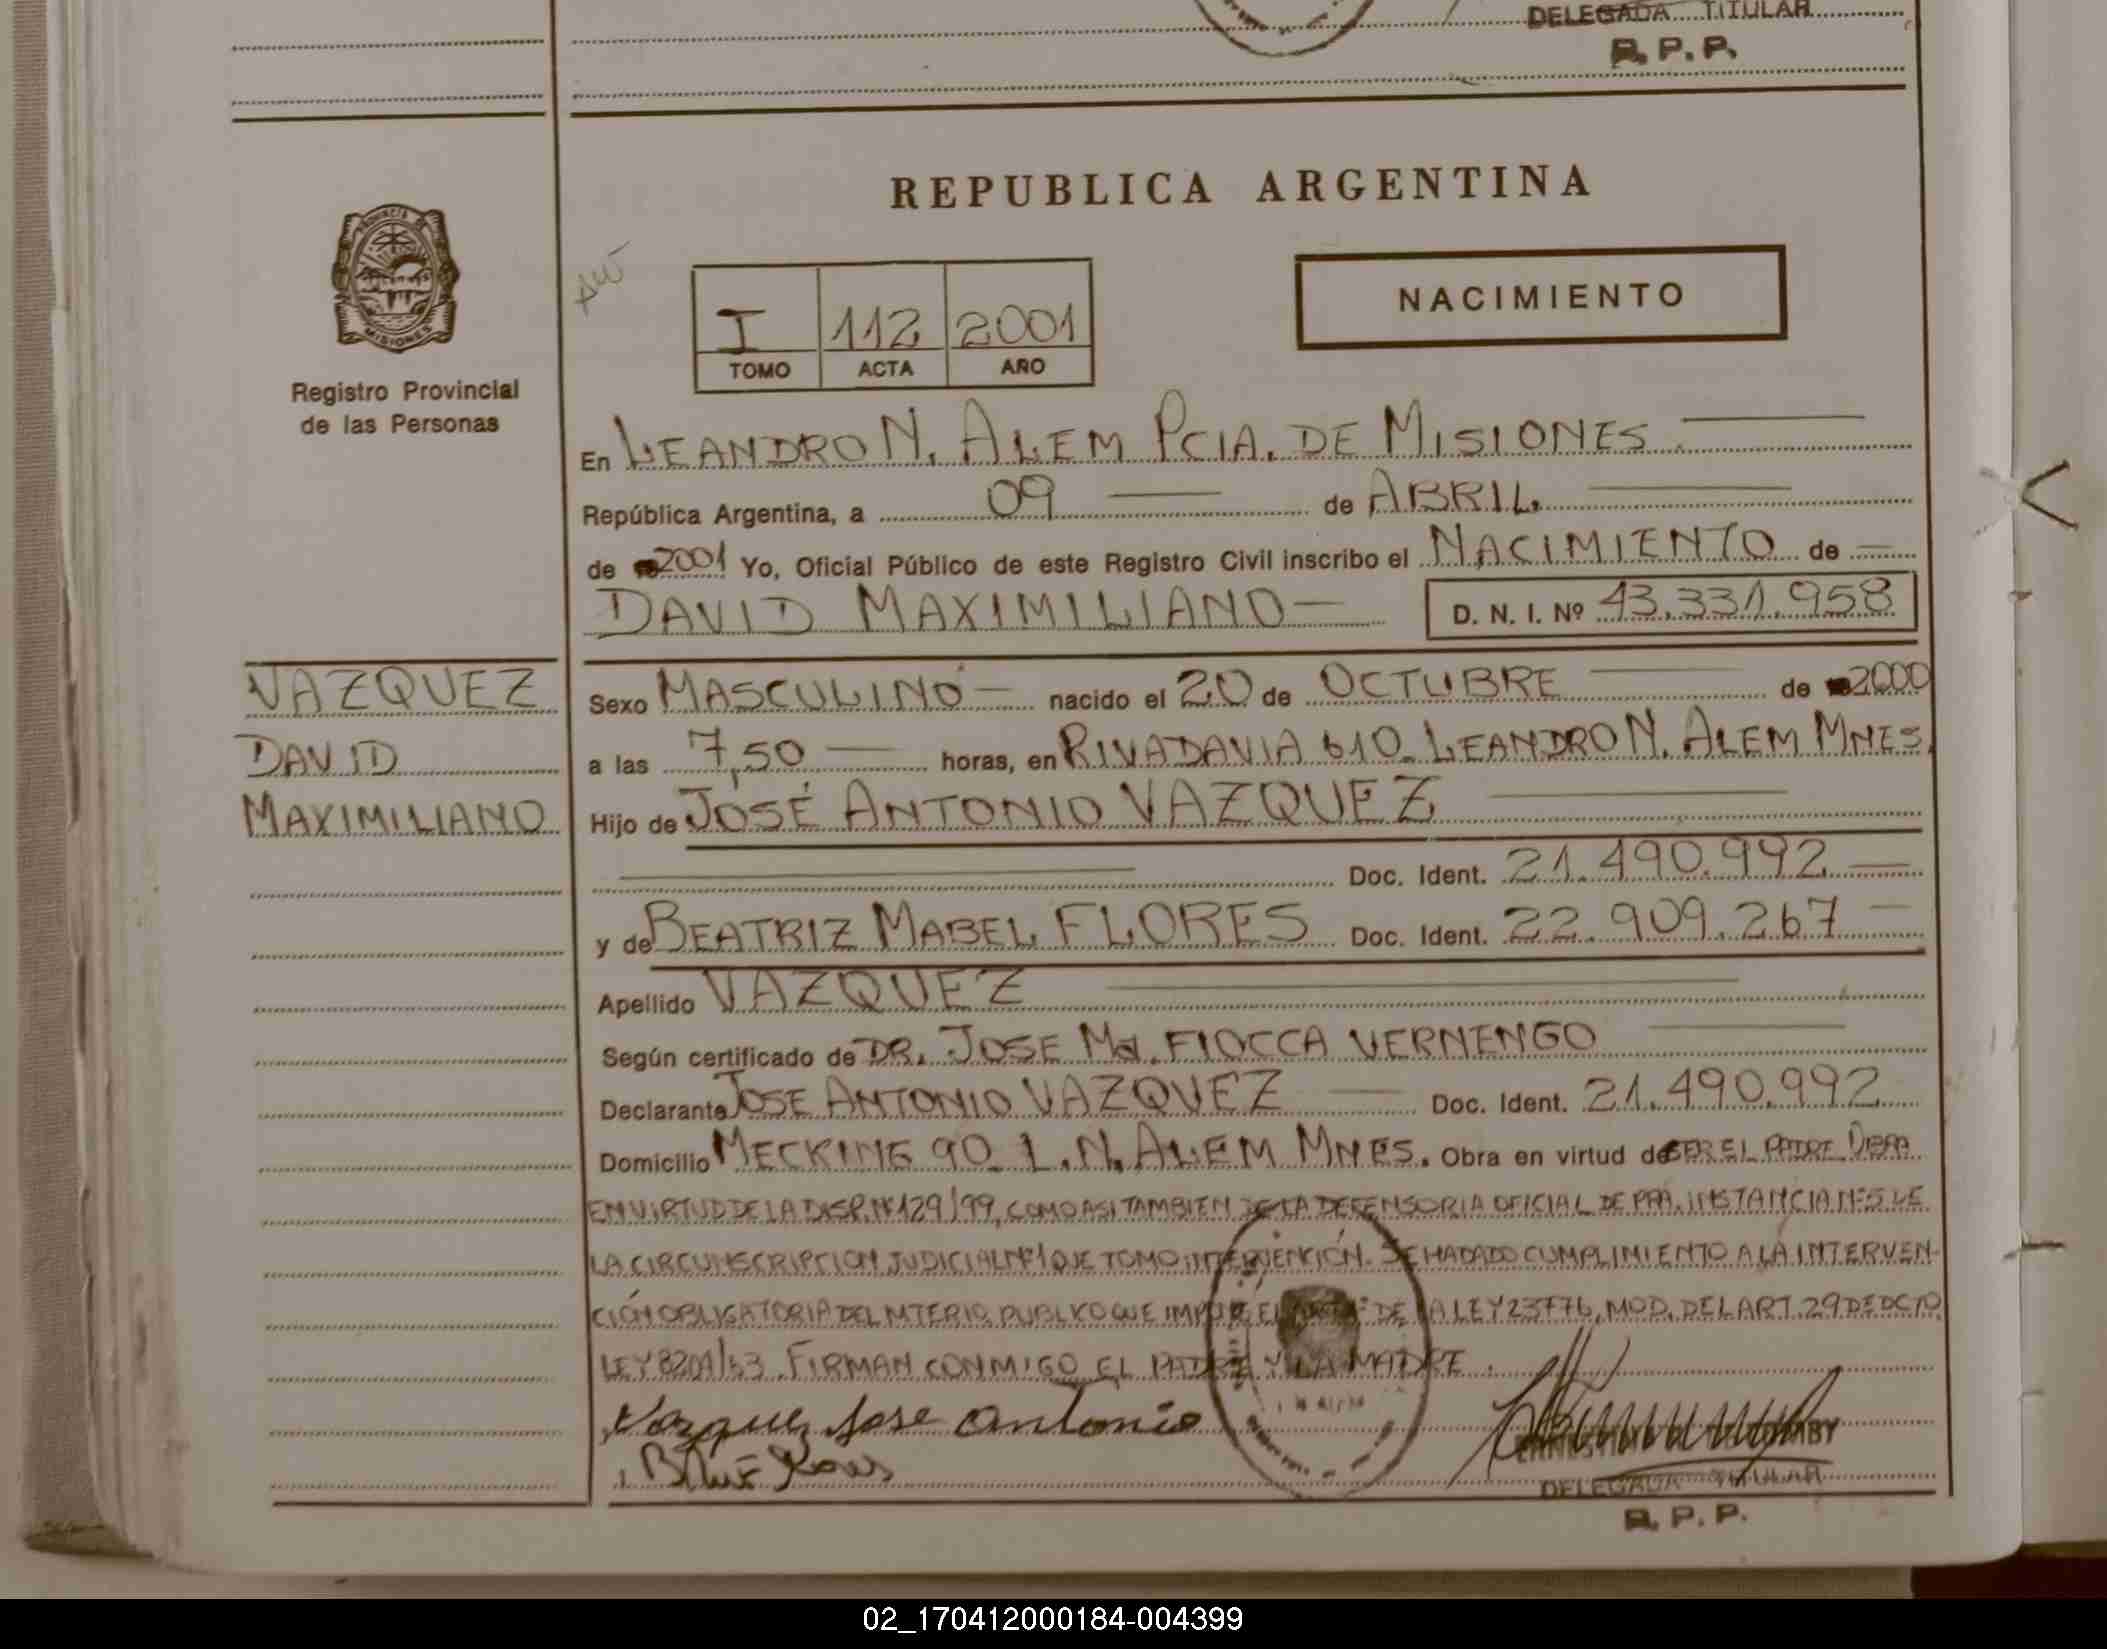 DELEGADA TITULAR
R. P. P.
REPUBLICA ARGENTINA
PROVINCIA DE
MISIONES
Registro Provincial
de las Personas
I 112 2001
TOMO ACTA AÑO
NACIMIENTO
En LEANDRO N. ALEM PCIA. DE MISIONES.
República Argentina, a 09 de ABRIL
de 2001 Yo, Oficial Público de este Registro Civil inscribo el NACIMIENTO de
DAVID MAXIMILIANO D. N. I. Nº 43.331.958
VAZQUEZ
DAVID
MAXIMILIANO
Sexo MASCULINO nacido el 20 de OCTUBRE de 2000
a las 7,50 horas, en RIVADAVIA 610_ LEANDRO N. ALEM MNES.
Hijo de JOSÉ ANTONIO VAZQUEZ
Doc. Ident. 21.490.992
y de BEATRIZ MABEL FLORES Doc. Ident. 22.909.267
Apellido VAZQUEZ
Según certificado de DR. JOSE Ma. FIOCCA VERNENGO
Declarante JOSE ANTONIO VAZQUEZ Doc. Ident. 21.490.992
Domicilio MECKING 90_ L.N. ALEM MNES. Obra en virtud de SER EL PADRE OBRA
EN VIRTUD DE LA DISP. Nº 129/99, COMO ASI TAMBIEN DE LA DEFENSORIA OFICIAL DE PRA. INSTANCIA Nº 5 DE
LA CIRCUNSCRIPCION JUDICIAL Nº 1 QUE TOMO INTERVENCIÓN. SE HA DADO CUMPLIMIENTO A LA INTERVEN-
CIÓN OBLIGATORIA DEL MTERIO. PUBLICO QUE IMPONE EL DE LA LEY 23776, MOD. DEL ART. 29 DE DCTO
LEY 8204/63. FIRMAN CONMIGO EL PADRE Y LA MADRE.
Vazquez Jose Antonio
DELEGADA TITULAR
R. P. P.
02_170412000184-004399